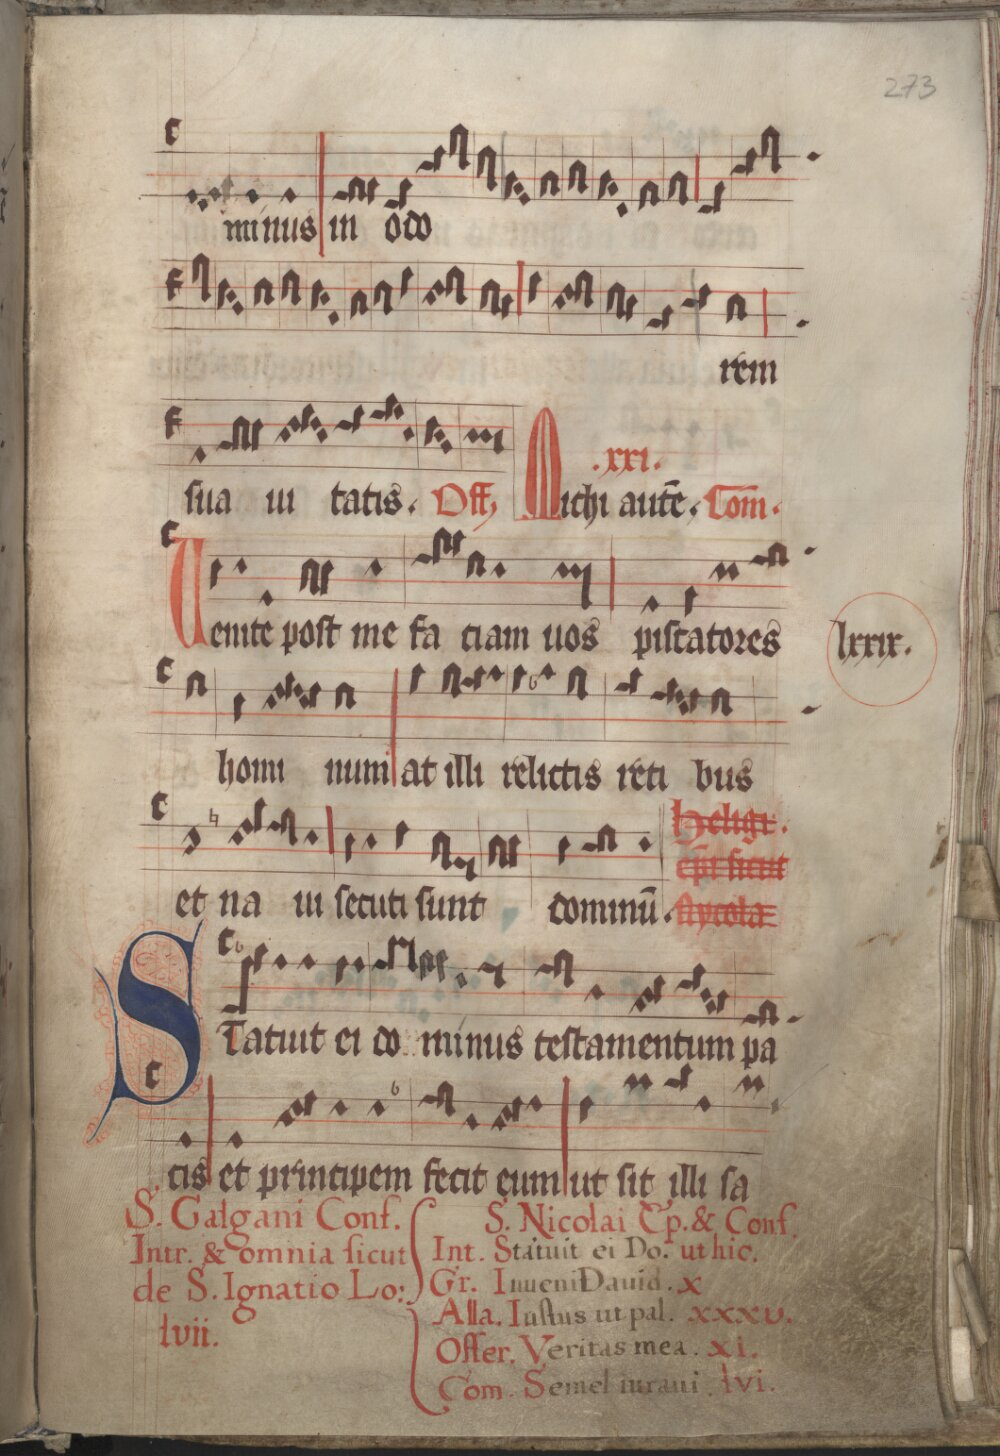 273
minus in odo
rem
.xxi.
sua ui tatis. Off. Michi autē. Com.
Uenite post me fa ciam uos piscatores
lxxix.
homi num at illi relictis reti bus
et na ui secuti sunt dominū.
STatuit ei do minus testamentum pa
cis et principem fecit eum ut sit illi sa
S. Galgani Conf.
Intr. & omnia sicut
de S. Ignatio Lo:
lvii.
S. Nicolai Ep. & Conf.
Int. Statuit ei Do. ut hic.
Gr. Inueni Dauid. x
Alla. Iustus ut pal. xxxv.
Offer. Veritas mea. xi.
Com. Semel iuraui. lvi.